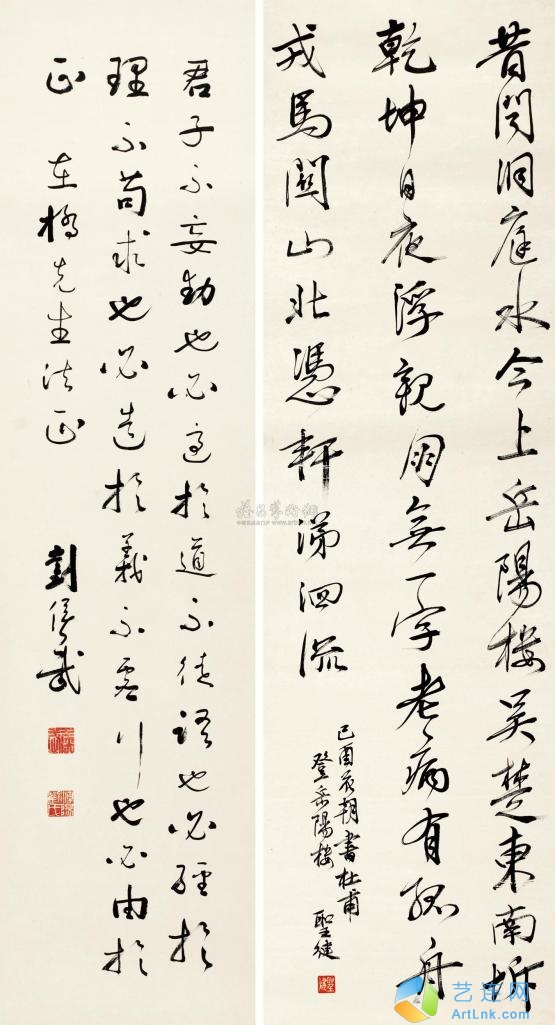 昔聞洞庭水今上岳陽楼吳楚東南坼
乾坤日夜浮親朋無一字老病有孤舟
戎馬關山北憑軒涕泗流
己酉花朝書杜甫
登岳陽楼 聖健
君子不妄動也必適於道不徒語也必經於
理不苟求也必造於義不虛行也必由於
正 在橋先生法正 劉侯武
艺连网
ArtLnk.com